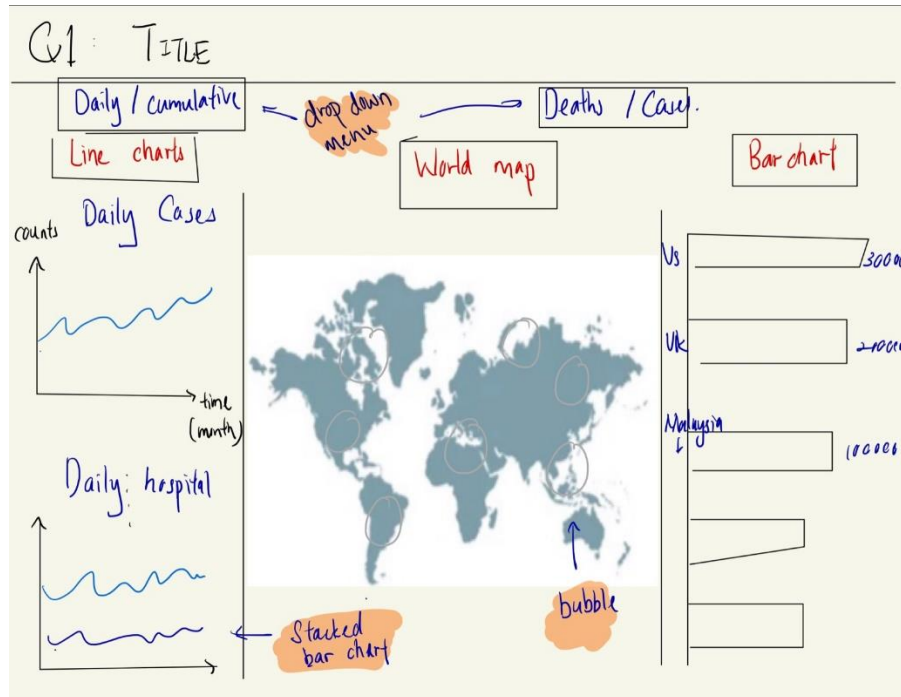 Q1: TITLE
Daily / cumulative
drop down
menu
Deaths / Cases.
Line charts
World map
Bar chart
Daily Cases
counts
time
(month)
Daily: hospital
Stacked
bar chart
bubble
US
UK
Malaysia
100000